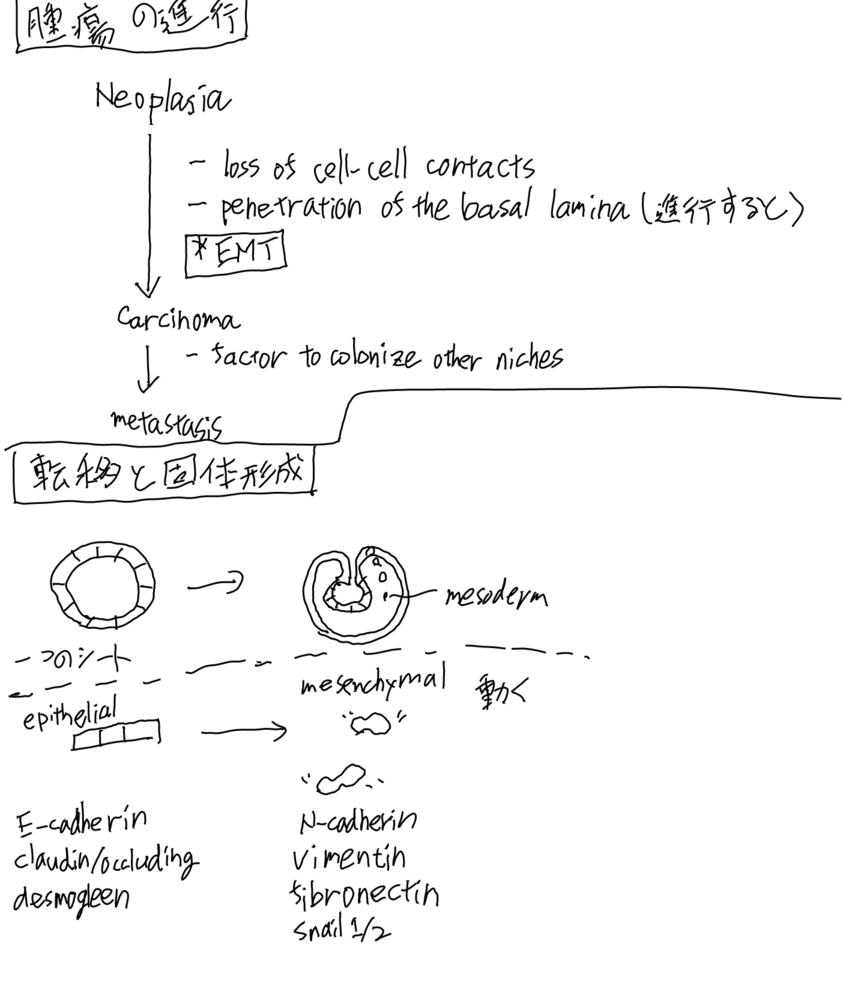 腫瘍の進行
Neoplasia
- loss of cell-cell contacts
- penetration of the basal lamina (進行すると)
*EMT
Carcinoma
- factor to colonize other niches
metastasis
転移と固体形成
mesoderm
一つのシート
mesenchymal 動く
epithelial
E-cadherin
claudin/occluding
desmogleen
N-cadherin
vimentin
fibronectin
snail 1/2